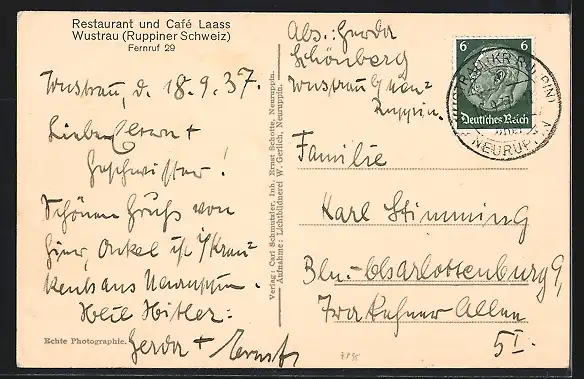 Restaurant und Café Laass
Wustrau (Ruppiner Schweiz)
Fernruf 29
Wustrau, d. 18.9.37.
Liebe Eltern +
Geschwister!
Schönen Gruß von
hier, Onkel ist i/Kran=
kenhaus Neuruppin.
Heil Hitler:
Gerda + Ernst
Echte Photographie.
Verlag: Carl Schmutzler, Inh. Ernst Schotte, Neuruppin.
Aufnahme: Lichtbildnerei W. Gerlich, Neuruppin.
Abs.: Gerda
Schönberg
Wustrau Neu=
Ruppin.
6 6
Deutsches Reich
NEURUPPIN
Familie
Karl Stimming
Bln.-Charlottenburg 9,
Allee
5 I.